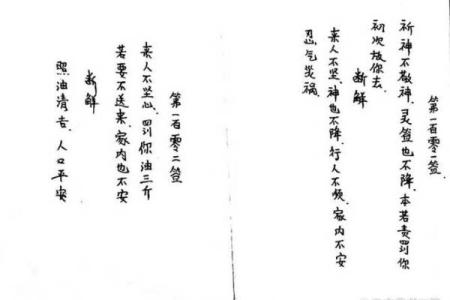 第一百零一签
祈神不敬神.灵签也不降.本若责罚你
初次放你去.
断解
亲人不坚.神也不降.行人不顺.家内不安
忍气災祸.
第一百零二签
亲人不坚心.罚你油三斤
若要不送来.家内也不安
断解
照油清吉.人口平安